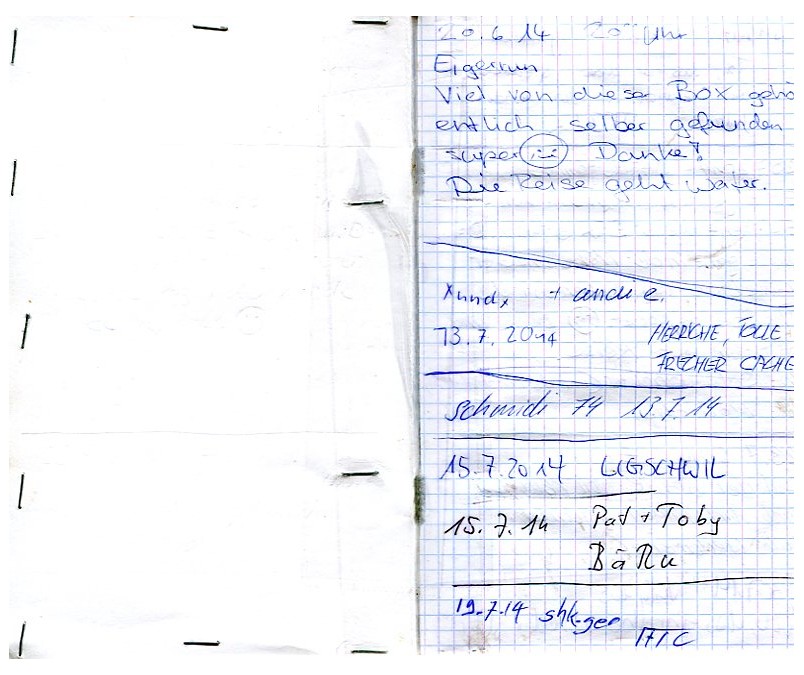 20.6.14 20 Uhr
Eigerrun
Viel von dieser Box gehö
entlich selber gefunden
super Danke!
Die Reise geht weiter.
xundx + andi e.
13.7.2014 HERRICHE, TOLLE
FRECHER CACHE
Schmidi 74 13.7.14
15.7.2014 LIGSCHWIL
15.7.14 Pat + Toby
BäRu
19.7.14 shk-ger